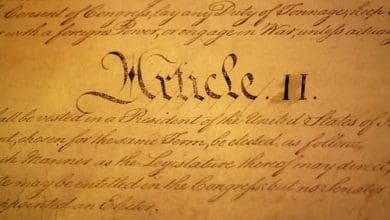 Consent of Congress, lay any Duty of Tonnage, keep
with a foreign Power, or engage in War, unless actua
Article. II.
all be vested in a President of the United States of
nt, chosen for the same Term, be elected, as follows
ch Manner as the Legislature thereof may direct,
te may be entitled in the Congress: but no Senato
appointed an Elector.